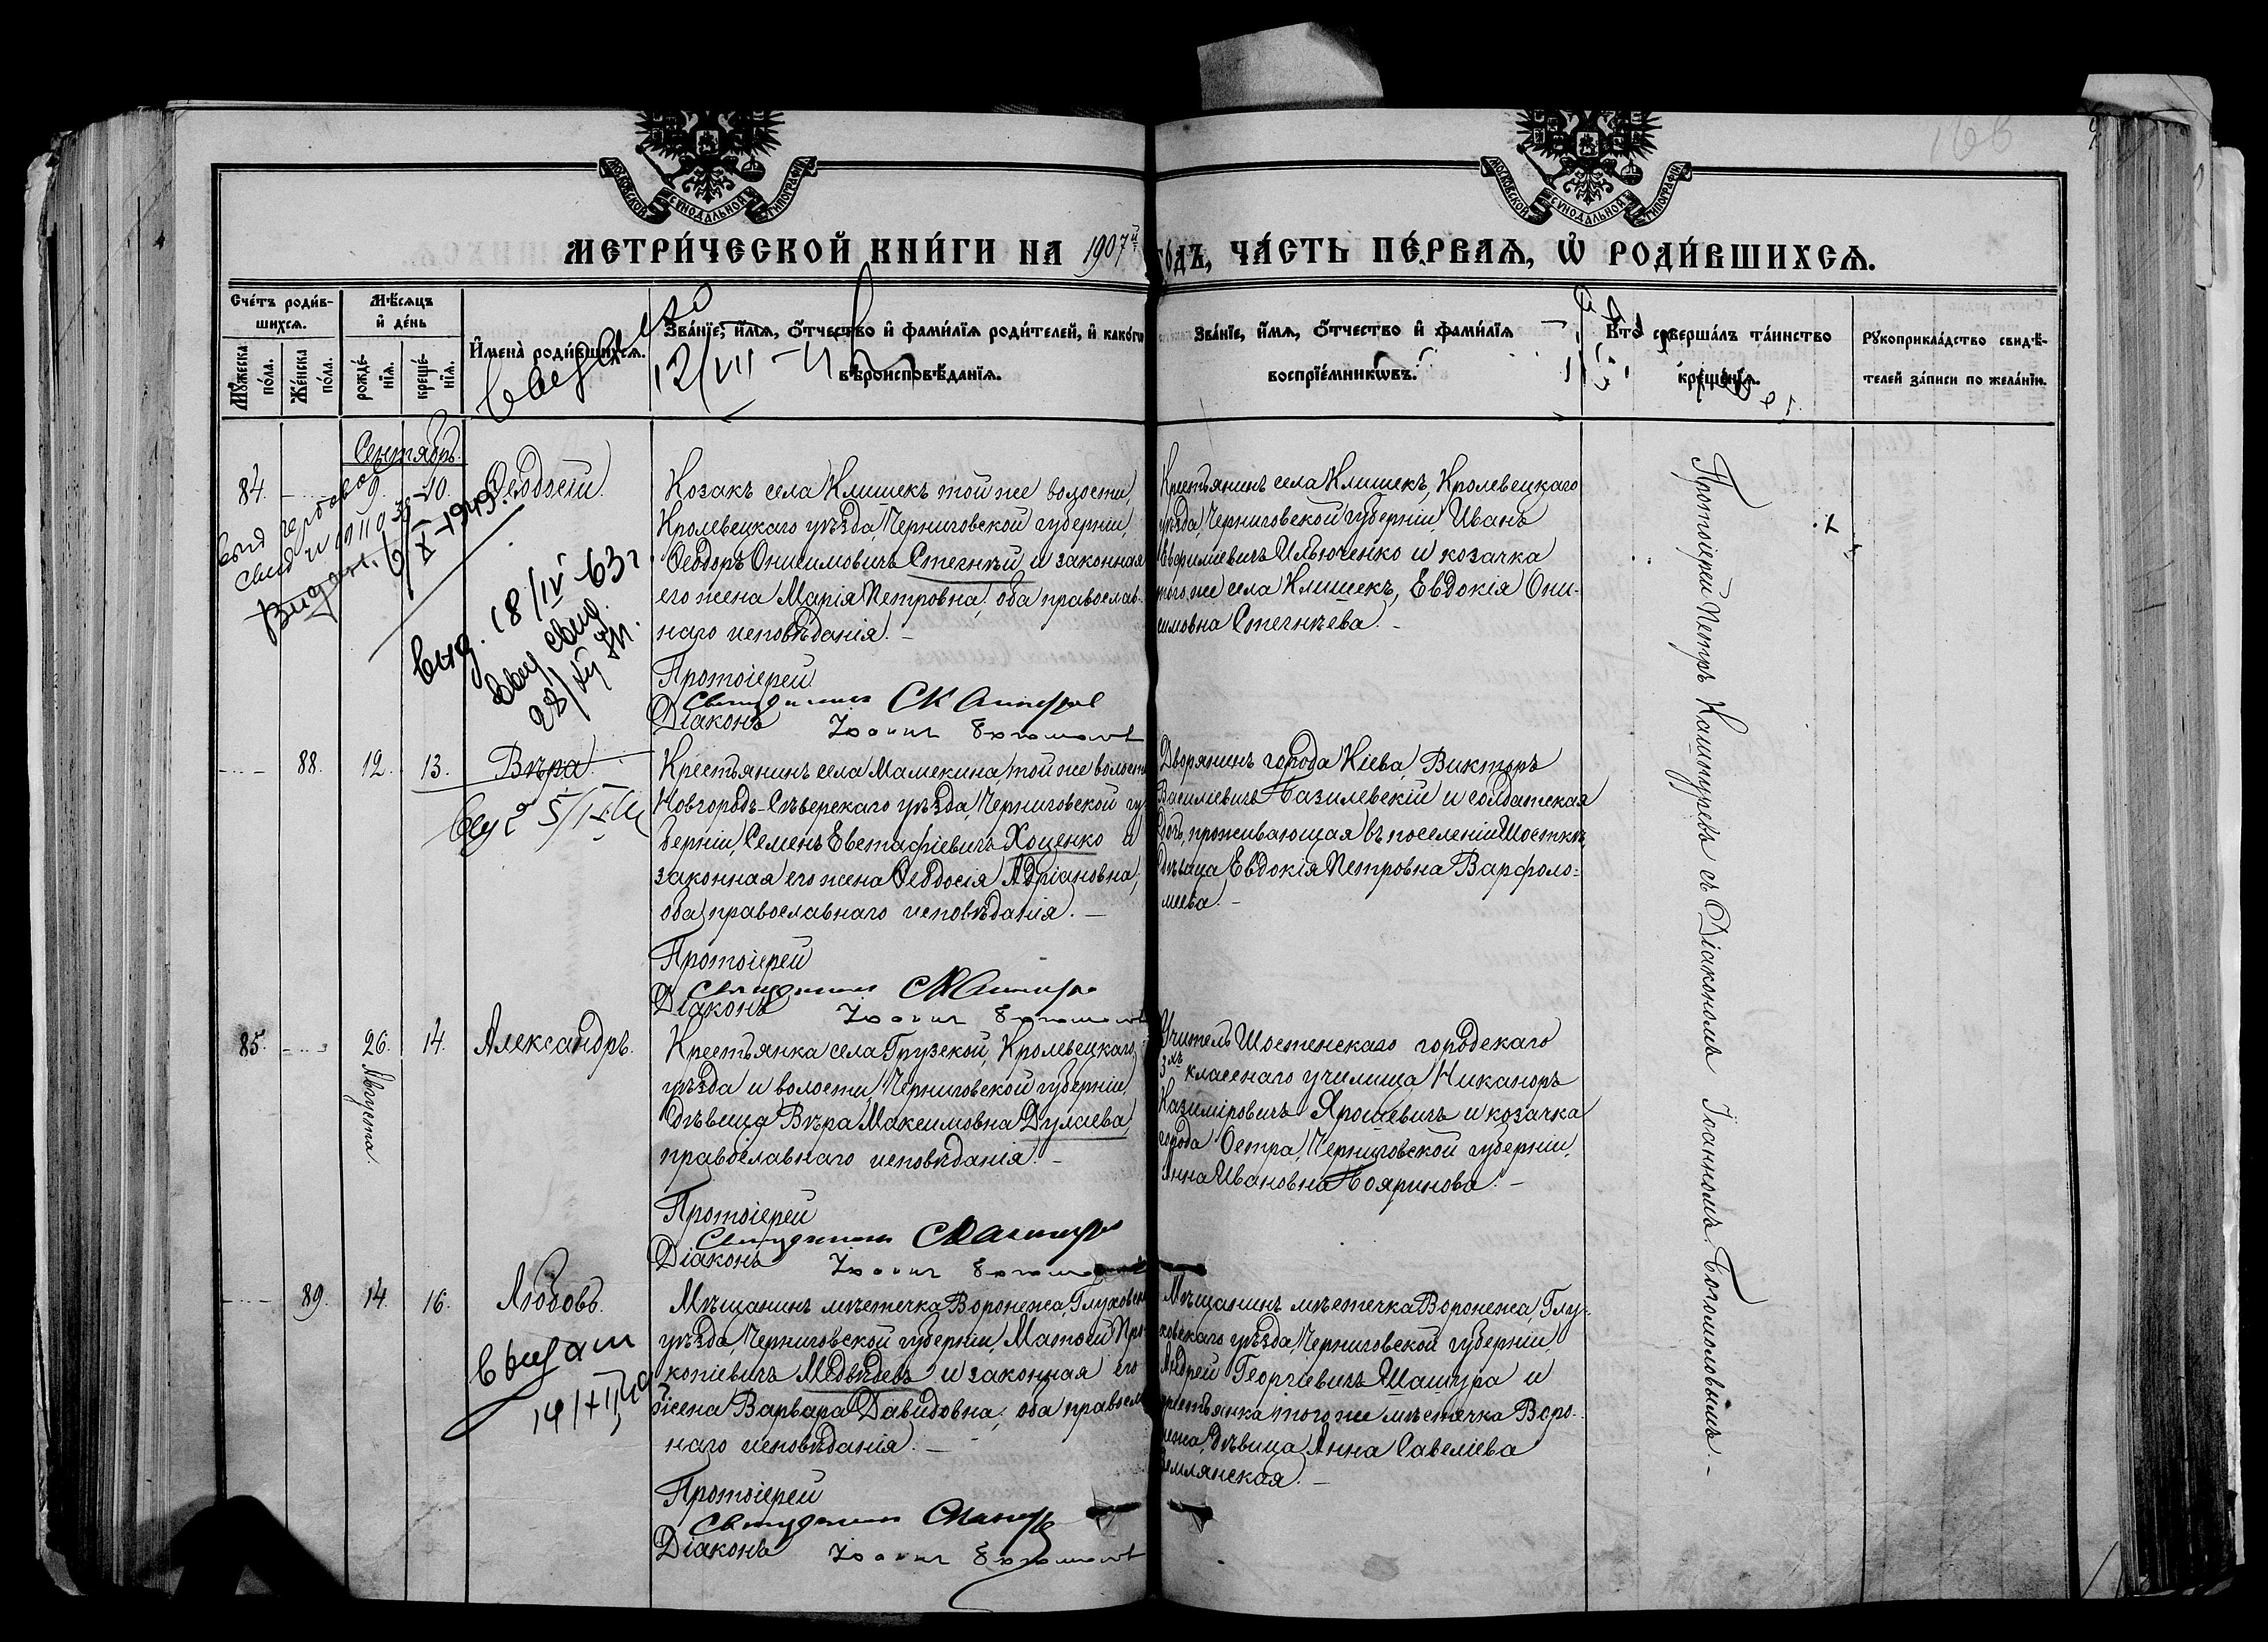 МОСКОВСКОЙ СѴНОДАЛЬНОЙ ТИПОГРАФІИ
МОСКОВСКОЙ СѴНОДАЛЬНОЙ ТИПОГРАФІИ
166
МЕТРИ́ЧЕСКОЙ КНИ́ГИ НА 1907й го́дъ, ЧА́СТЬ ПЕ́РВАѦ, Ѡ҆ РОДИ́ВШИХСѦ.
Сче́тъ роди́в-
шихсѧ.
Мꙋжеска по́ла.
Же́нска по́ла.
Мѣ́сѧцъ
и҆ де́нь
рожде́-
нїѧ.
креще́-
нїѧ.
И҆мена̀ роди́вшихсѧ.
Зва́нїе, и҆́мѧ, ѻ҆́тчество и҆ фами́лїѧ роди́телей, и҆ како́гѡ
вѣроисповѣ́данїѧ.
Зва́нїе, и҆́мѧ, ѻ҆́тчество и҆ фами́лїѧ
воспрїе́мникѡвъ.
Кто̀ соверша́лъ та́инство
креще́нїѧ.
Рꙋкоприкла́дство свидѣ́-
телей за́писи по жела́нїю.
Сентябрь.
84. 9. 10. Ѳеодосій.
Козакъ села Клишекъ той же волости,
Кролевецкаго уѣзда, Черниговской губерніи,
Ѳеодоръ Онисимовичъ Стегнѣй и законная
его жена Марія Петровна, оба православ-
наго исповѣданія. –
Протоіерей
Діаконъ
Крестьянинъ села Клишекъ, Кролевецкаго
уѣзда, Черниговской губерніи Иванъ
Евфиміевичъ Ильюченко и козачка
того же села Клишекъ, Евдокія Они-
симовна Стегнѣева. –
выд. 18/IV-63г.
88. 12. 13. Вѣра.
Крестьянинъ села Мамекина той же волости
Новгородъ-Сѣверскаго уѣзда, Черниговской гу-
берніи, Семенъ Евстафіевичъ Хоценко и
законная его жена Ѳеодосія Адріановна,
оба православнаго исповѣданія. –
Протоіерей
Діаконъ
Дворянинъ города Кіева, Викторъ
Василіевичъ Базилевскій и солдатская
дочь, проживающая въ поселеніи Шосткѣ,
дѣвица Евдокія Петровна Варфоло-
меева. –
85. 26. Августа. 14. Александръ.
Крестьянка села Грузской, Кролевецкаго
уѣзда и волости, Черниговской губерніи,
дѣвица Вѣра Максимовна Дулаева,
православнаго исповѣданія. –
Протоіерей
Діаконъ
Учитель Шостенскаго городскаго
3хъ класснаго училища Никаноръ
Казиміровичъ Ярошевичъ и козачка
города Остра, Черниговской губерніи,
Анна Ивановна Бояринова. –
89. 14. 16. Любовь.
Мѣщанинъ мѣстечка Воронежа, Глуховскаго
уѣзда, Черниговской губерніи, Матвѣй Про-
копіевичъ Медвѣдевъ и законная его
жена Варвара Давидовна, оба православ-
наго исповѣданія. –
Протоіерей
Діаконъ
Мѣщанинъ мѣстечка Воронежа, Глу-
ховскаго уѣзда, Черниговской губерніи,
Андрей Георгіевичъ Шашура и
крестьянка того же мѣстечка Воро-
нежа, дѣвица Анна Савеліева
Землянская. –
Протоіерей Петръ Кашпуревъ съ Діакономъ Іоанномъ Богомоловымъ. –